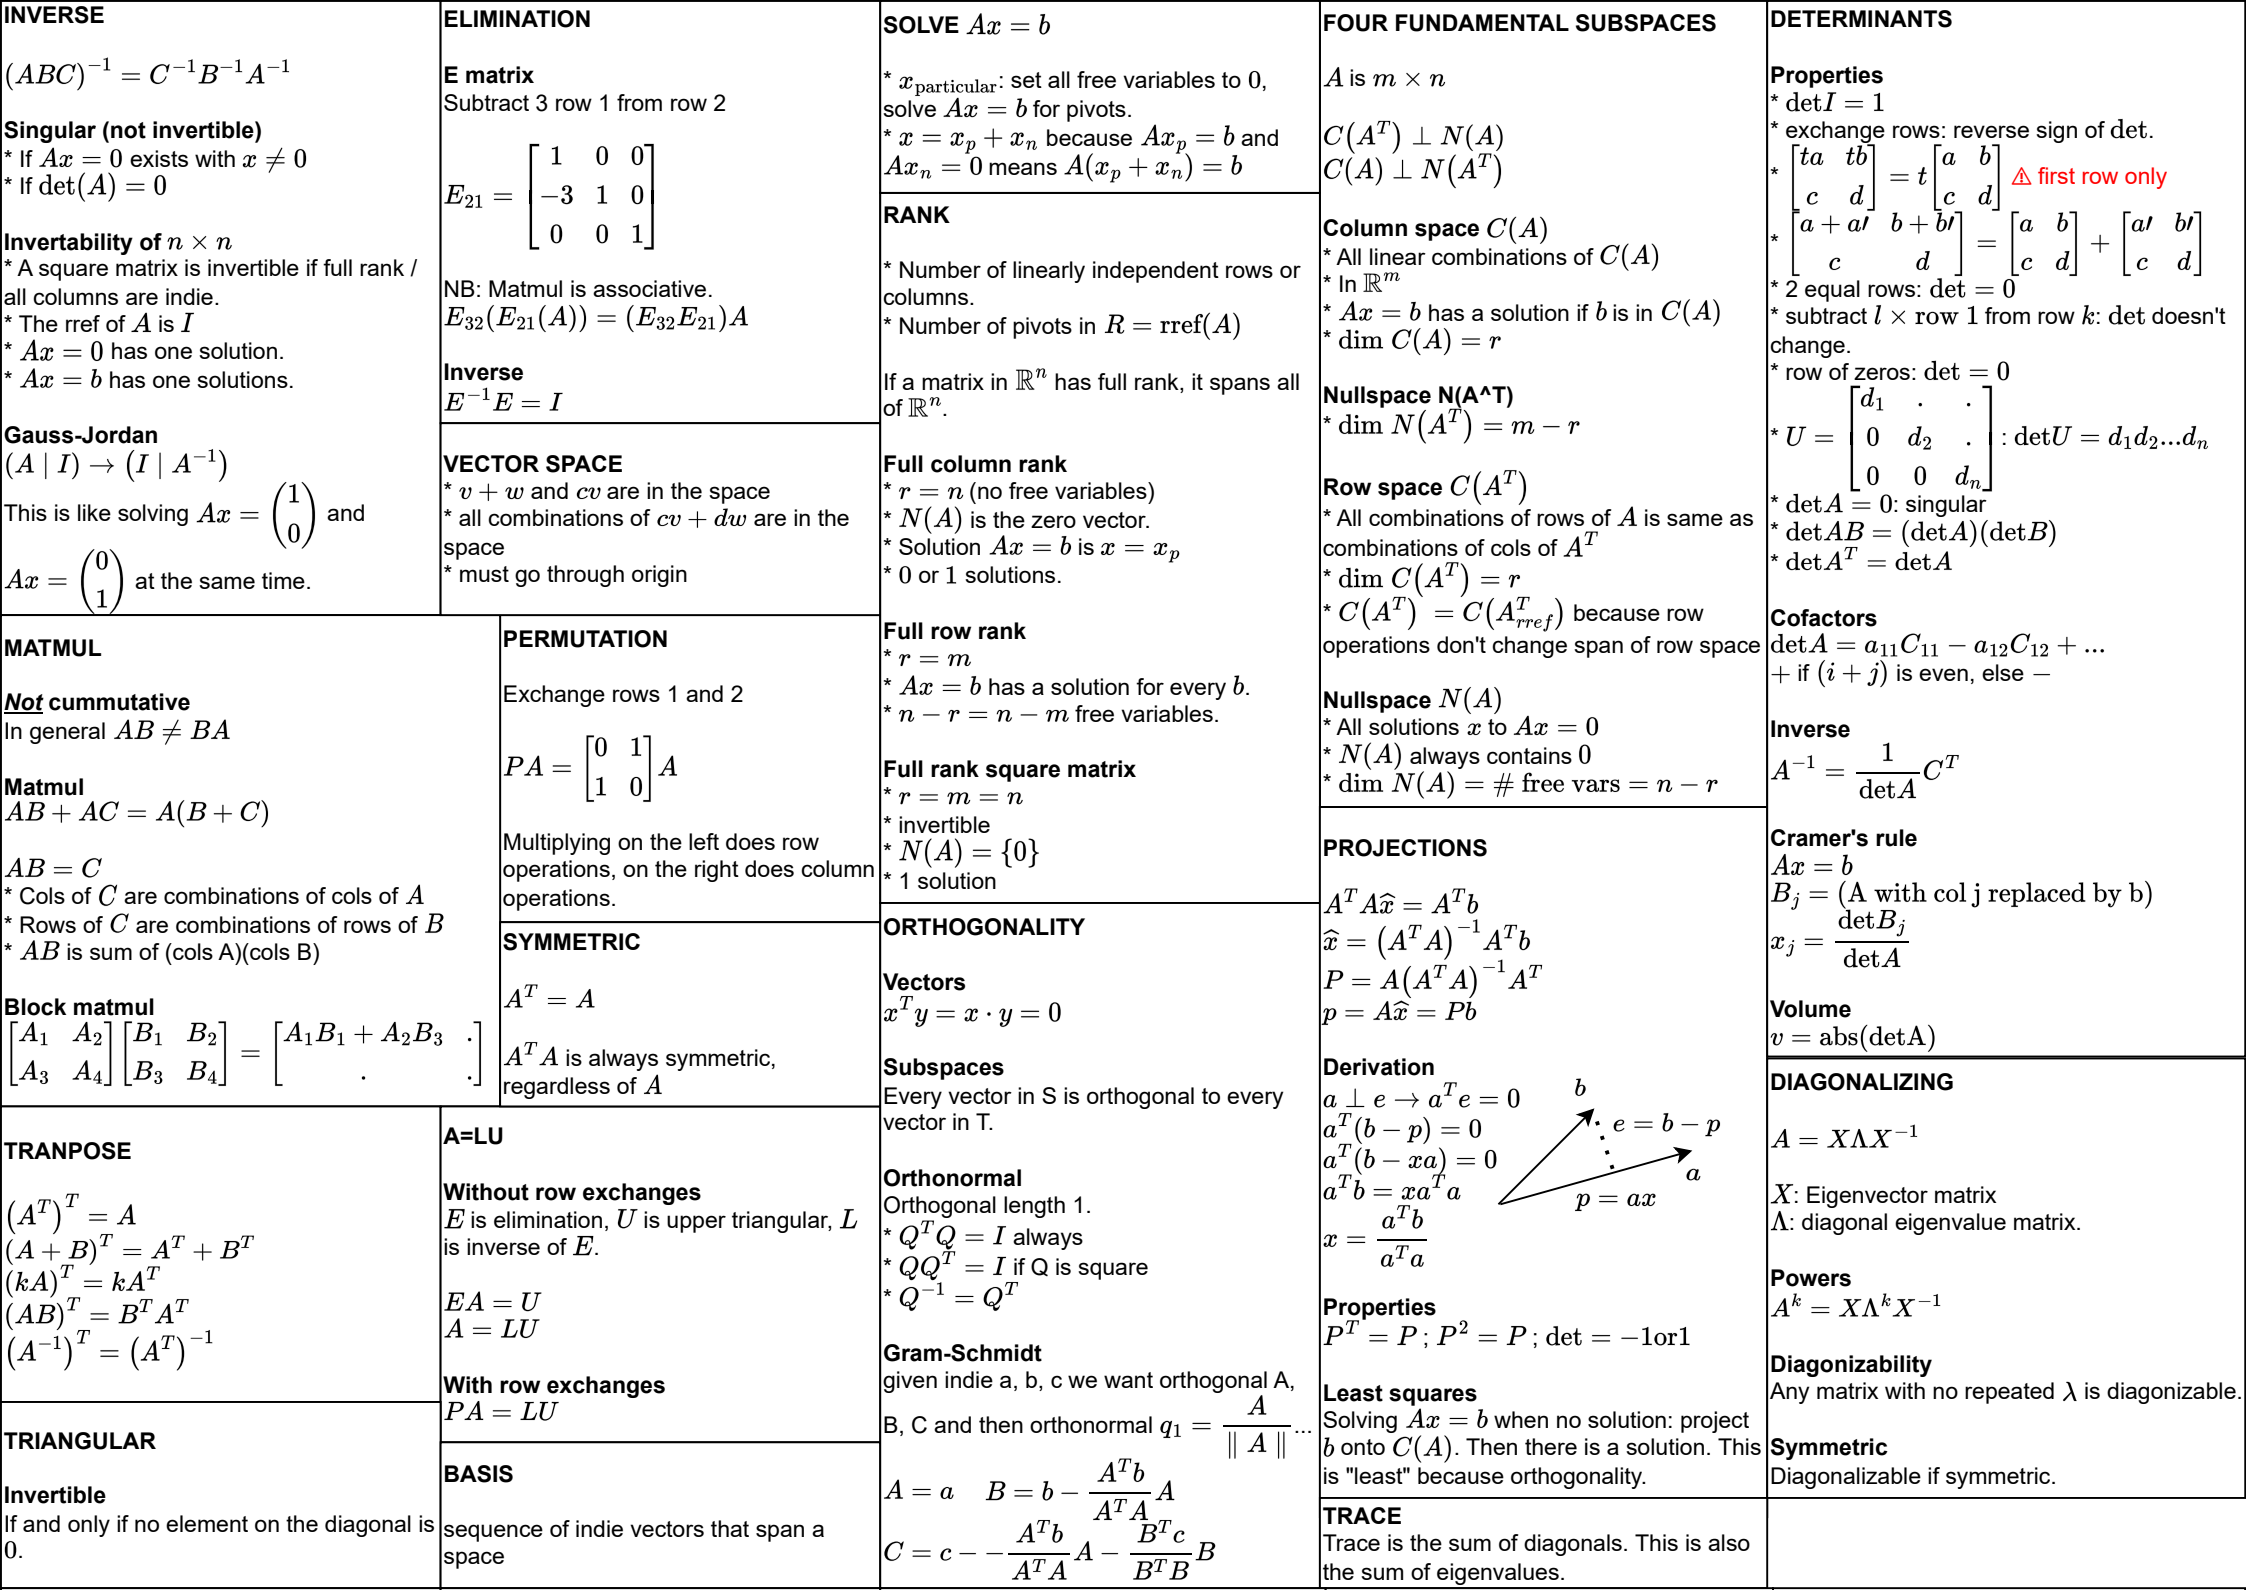 INVERSE
(ABC)^{-1} = C^{-1}B^{-1}A^{-1}
Singular (not invertible)
* If Ax = 0 exists with x ≠ 0
* If det(A) = 0
Invertability of n × n
* A square matrix is invertible if full rank /
all columns are indie.
* The rref of A is I
* Ax = 0 has one solution.
* Ax = b has one solutions.
Gauss-Jordan
(A | I) → (I | A^{-1})
This is like solving Ax = (1 0) and
Ax = (0 1) at the same time.
ELIMINATION
E matrix
Subtract 3 row 1 from row 2
E_{21} = [1 0 0
−3 1 0
0 0 1]
NB: Matmul is associative.
E_{32}(E_{21}(A)) = (E_{32}E_{21})A
Inverse
E^{-1}E = I
VECTOR SPACE
* v + w and cv are in the space
* all combinations of cv + dw are in the
space
* must go through origin
MATMUL
Not cummutative
In general AB ≠ BA
Matmul
AB + AC = A(B + C)
AB = C
* Cols of C are combinations of cols of A
* Rows of C are combinations of rows of B
* AB is sum of (cols A)(cols B)
Block matmul
[A_1 A_2] [B_1 B_2] = [A_1B_1 + A_2B_3 .]
[A_3 A_4] [B_3 B_4] [. .]
PERMUTATION
Exchange rows 1 and 2
PA = [0 1
1 0] A
Multiplying on the left does row
operations, on the right does column
operations.
SYMMETRIC
A^T = A
A^T A is always symmetric,
regardless of A
TRANPOSE
(A^T)^T = A
(A + B)^T = A^T + B^T
(kA)^T = kA^T
(AB)^T = B^T A^T
(A^{-1})^T = (A^T)^{-1}
TRIANGULAR
Invertible
If and only if no element on the diagonal is
0.
A=LU
Without row exchanges
E is elimination, U is upper triangular, L
is inverse of E.
EA = U
A = LU
With row exchanges
PA = LU
BASIS
sequence of indie vectors that span a
space
SOLVE Ax = b
* x_{particular}: set all free variables to 0,
solve Ax = b for pivots.
* x = x_p + x_n because Ax_p = b and
Ax_n = 0 means A(x_p + x_n) = b
RANK
* Number of linearly independent rows or
columns.
* Number of pivots in R = rref(A)
If a matrix in ℝ^n has full rank, it spans all
of ℝ^n.
Full column rank
* r = n (no free variables)
* N(A) is the zero vector.
* Solution Ax = b is x = x_p
* 0 or 1 solutions.
Full row rank
* r = m
* Ax = b has a solution for every b.
* n − r = n − m free variables.
Full rank square matrix
* r = m = n
* invertible
* N(A) = {0}
* 1 solution
ORTHOGONALITY
Vectors
x^T y = x · y = 0
Subspaces
Every vector in S is orthogonal to every
vector in T.
Orthonormal
Orthogonal length 1.
* Q^T Q = I always
* QQ^T = I if Q is square
* Q^{-1} = Q^T
Gram-Schmidt
given indie a, b, c we want orthogonal A,
B, C and then orthonormal q_1 = A / ∥ A ∥ ...
A = a B = b − (A^T b / A^T A) A
C = c − − (A^T b / A^T A) A − (B^T c / B^T B) B
FOUR FUNDAMENTAL SUBSPACES
A is m × n
C(A^T) ⊥ N(A)
C(A) ⊥ N(A^T)
Column space C(A)
* All linear combinations of C(A)
* In ℝ^m
* Ax = b has a solution if b is in C(A)
* dim C(A) = r
Nullspace N(A^T)
* dim N(A^T) = m − r
Row space C(A^T)
* All combinations of rows of A is same as
combinations of cols of A^T
* dim C(A^T) = r
* C(A^T) = C(A^T_{rref}) because row
operations don't change span of row space
Nullspace N(A)
* All solutions x to Ax = 0
* N(A) always contains 0
* dim N(A) = # free vars = n − r
PROJECTIONS
A^T A x̂ = A^T b
x̂ = (A^T A)^{-1} A^T b
P = A(A^T A)^{-1} A^T
p = A x̂ = Pb
Derivation
a ⊥ e → a^T e = 0
a^T(b − p) = 0
a^T(b − xa) = 0
a^T b = xa^T a
x = a^T b / a^T a
b
e = b − p
a
p = ax
Properties
P^T = P ; P^2 = P ; det = −1or1
Least squares
Solving Ax = b when no solution: project
b onto C(A). Then there is a solution. This
is "least" because orthogonality.
TRACE
Trace is the sum of diagonals. This is also
the sum of eigenvalues.
DETERMINANTS
Properties
* detI = 1
* exchange rows: reverse sign of det.
* [ta tb
c d] = t [a b
c d] ⚠ first row only
* [a + a′ b + b′
c d] = [a b
c d] + [a′ b′
c d]
* 2 equal rows: det = 0
* subtract l × row 1 from row k: det doesn't
change.
* row of zeros: det = 0
* U = [d_1 . .
0 d_2 .
0 0 d_n] : detU = d_1d_2...d_n
* detA = 0: singular
* detAB = (detA)(detB)
* detA^T = detA
Cofactors
detA = a_{11}C_{11} − a_{12}C_{12} + ...
+ if (i + j) is even, else −
Inverse
A^{-1} = 1 / detA C^T
Cramer's rule
Ax = b
B_j = (A with col j replaced by b)
x_j = detB_j / detA
Volume
v = abs(detA)
DIAGONALIZING
A = XΛX^{-1}
X: Eigenvector matrix
Λ: diagonal eigenvalue matrix.
Powers
A^k = XΛ^k X^{-1}
Diagonizability
Any matrix with no repeated λ is diagonizable.
Symmetric
Diagonalizable if symmetric.